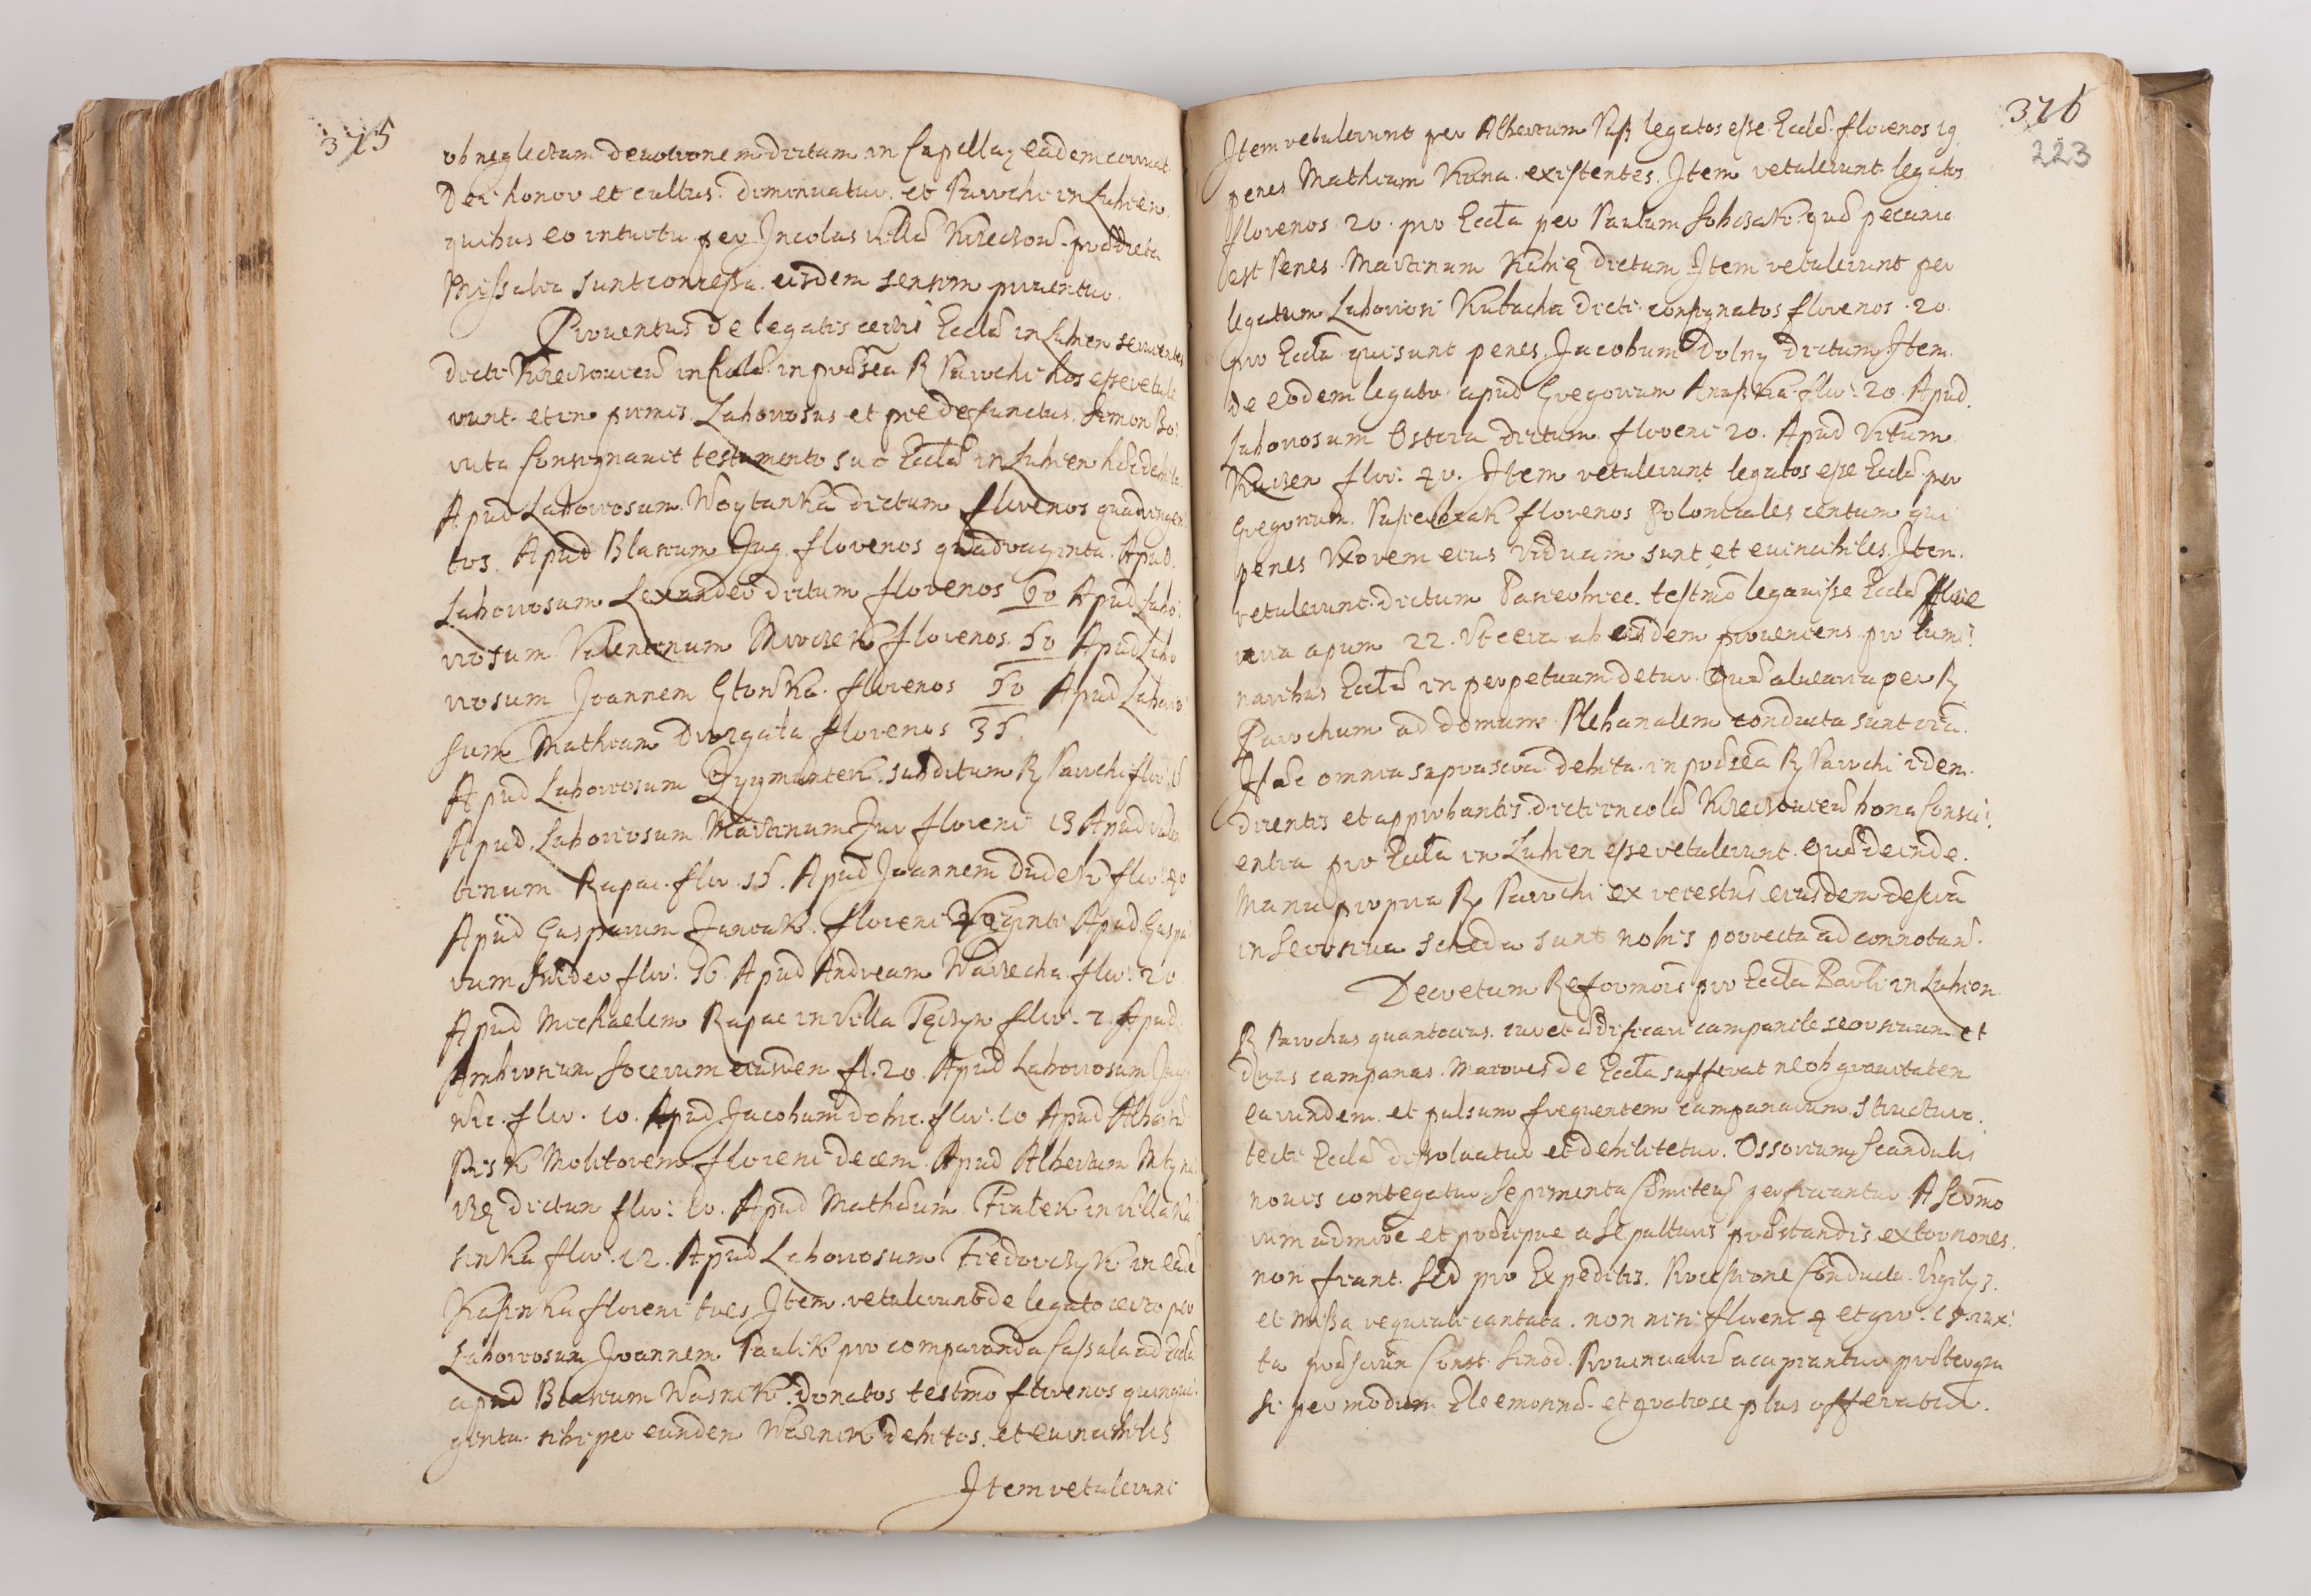 375
ob neglectum deuotionem dictam in Capella eadem corruat
Dei honor et cultus diminuatur et Parochi in Lubien
quibus eo intuitu per Incolas Villæ Krzeczow prædicta
Missalia sunt concessa eisdem sensim priuentur.
Prouentus de legatis certis Eccla in Lubien seruientes
dicti Krzeczouien incolæ in præsentia R Parochi hos esse retule
runt et in primis Laboriosus et præ defunctus Simon Bo
ruta Consignauit testamento suo Eccla in Lubien
Apud Laboriosum Woytanka dictum florenos quadringen
tos. Apud Blasium Jug florenos quadraginta. Apud
Laboriosum Lexander dictum florenos 60 Apud Labo
riosum Valentinum Mroczek florenos 50 Apud Labo
riosum Joannem Glonka florenos 50 Apud Laborio
sum Mathiam Drozgała florenos 35.
Apud Laboriosum Zygmuntek subditum R Parochi flor
Apud Laboriosum Martinum Jur floreni 13 Apud Valen
tinum Rapac flor. 15. Apud Joannem Dudek flor 40
Apud Gasparum Janczak floreni Viginti Apud Gaspa
rum Snider flor: 16. Apud Andream Warzecha flor: 20
Apud Michaelem Rapac in Villa Tęczyn flor. 2. Apud
Ambrosium socerum eiusdem fl. 20. Apud Laboriosum
flor. 10. Apud Jacobum flor: 10 Apud Albertum
Molitorem floreni decem. Apud Albertum Młyna
rzę dictum flor: 10. Apud Mathæum Fiałek in Villa Ka
sinka flor: 12. Apud Laboriosum Fiedorczyk in eadem
Kasinka floreni tres Item retulerunt de legato certo per
Laboriosum Joannem Paulik pro comparanda Casula ad Eccla
apud Blasium Wasnik donatos testmo florenos quinqua
ginta sibi per eundem Wasnik debitos et euincibiles
Item retulerunt
376
223
Item retulerunt per Albertum legatos esse Eccla florenos 19.
penes Mathiam Kuna existentes. Item retulerunt legatos
florenos 20 pro Eccla per Paulum Sobczak quæ pecunia
est Penes Martinum dictum Item retulerunt per
legatum Laboriosi Kubacha dicti consignatos florenos 20.
pro Eccla qui sunt penes Jacobum Dolny dictum. Item
de eodem legato apud Gregorium flor: 20. Apud
Laboriosum Ostera dictum floreni 20. Apud Vitum
flor: 40. Item retulerunt legatos esse Eccla per
Gregorium florenos Polonicales centum qui
penes Vxorem eius Viduam sunt et euincibiles. Item
retulerunt dictum testmo legauisse Eccla
apum 22. Vt cera ab eisdem proueniens pro lumi
naribus Eccla in perpetuum detur. Quæ aluearia per R
Parochum ad domum Plebanalem conducta sunt
Hæc omnia supra debita in præsentia R Parochi idem
dicentis et approbantis dicti incolæ Krzeczouien bona Consci
entia pro Eccla in Lubien esse retulerunt. Quæ deinde
manu propria R Parochi ex recestu eiusdem
in seorsiua scheda sunt nobis porrecta ad connotand.
Decretum Reformois pro Eccla Parli in Lubien
R Parochus quantocius curet ædificari campanile seorsiuum et
duas campanas maiores de Eccla sufferat ne ob grauitatem
earundem et pulsum frequentem campanarum structura
tecti Eccla dissoluatur et debilitetur. Ossorium scandulis
nouis contegatur Sepimenta Cœmiterij perficiantur. A
et præcipue a Sepulturis præstandis extorsiones
non fiant. Sed pro Expeditis Processione Conducta Vigilijs
et missa requiali cantata non nisi floreni 4 et gro. 18 iux
ta Const. Sinod. Prouincialis accipiantur
si per modum Eleemosinæ et gratiose plus offeratur.